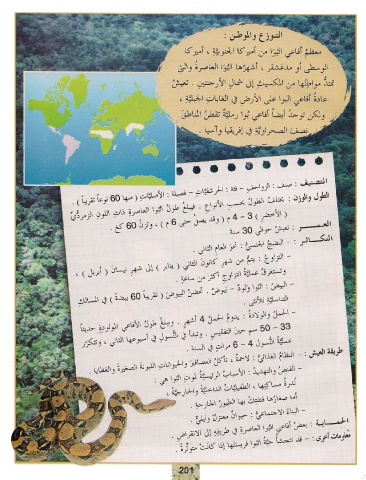 التوزع والموطن :
معظم أفاعي البُوَا من أميركا الجنوبيّة ، أميركا
الوسطى أو مدغشقر ، أشهرُها البُوَا العاصرةُ والتي
تمتدُّ مواطنُها من المكسيكِ إلى شمالِ الأرجنتين . تعيشُ
عادةً أفاعي البوا على الأرضِ في الغاباتِ الجبليّةِ ،
ولكن توجدُ أيضاً أفاعي بُوا رمليّةٌ تقطنُ المناطقَ
نصفَ الصحراويّةِ في إفريقيا وآسيا .
التصنيف : صنف : الزواحف – فئة : الحرشفيّات – فصيلة : الأصليّات ( منها 60 نوعاً تقريباً ) .
الطول والوزن : يختلفُ الطولُ بحسبِ الأنواعِ . فيبلغُ طولُ البُوَا العاصرةِ ذاتِ اللونِ الزمرّديِّ
( الأخضرِ ) 3 – 4 م ( وقد يصلُ حتى 6 م ) . وتزنُ 60 كغ .
العمر : تعيشُ حوالي 30 سنة .
التكاثر : – النضجُ الجنسيُّ : نحوَ العامِ الثاني .
– التزاوجُ : يتمُّ من شهرِ كانون الثاني ( يناير ) إلى شهرِ نيسان ( أبريل ) ،
وتستغرقُ عمليّةُ التزاوجِ أكثرَ من ساعةٍ .
– البيضُ : البُوا ولودٌ – بَيوضٌ . تحضنُ البيوضُ ( تقريباً 60 بيضة ) في المسالكِ
التناسليّةِ للأنثى .
– الحملُ والولادةُ : يدومُ الحملُ 4 أشهرٍ . ويبلغُ طولُ الأفاعي المولودةِ حديثاً
33 – 50 سم حينَ التفقيسِ . وتبدأُ في النُّسولِ في أسبوعِها الثاني ، وتتكرّرُ
عمليّةُ النُّسولِ 4 – 6 مراتٍ في السنةِ .
طريقة العيش : – النظامُ الغذائيُّ : لاحمةٌ ، تأكلُ العصافيرَ والحيواناتِ اللبونةَ الصغيرةَ والعظايا .
– القنصُ والتهديدُ : الأسبابُ الرئيسيّةُ لموتِ البُوا هي :
نُدرةُ مساكنِها ، الطفيليّاتُ الداخليّةُ والخارجيّةُ ،
أما صغارُها فتفتكُ بها الطيورُ الجارحةُ .
– البناءُ الاجتماعيُّ : حيوانٌ منعزلٌ وليليٌّ .
الحماية : بعضُ أفاعي البُوا العاصرةِ في طريقِهِ إلى الانقراضِ .
معلومات أخرى : – قد تتجشّأُ حيّةُ البُوا فريستَها إذا كانَت متوتّرةً .
201